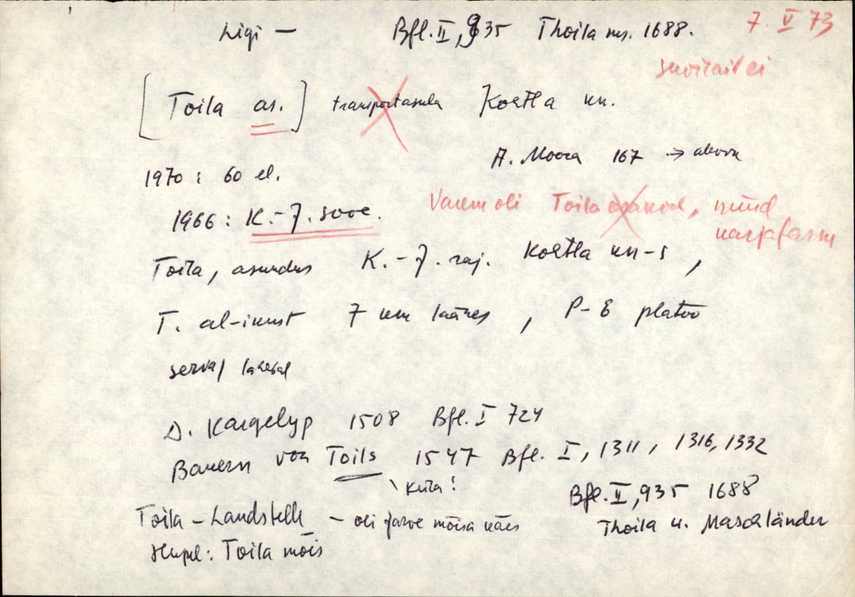 Ligi — Bfl. II, 935 Thoila ms. 1688. 7. V 73
suvitati ei
[Toila as.] transportasula Kohtla kn.
A. Moora 167 →
1970: 60 el.
1966: K.-J. sove. Varem oli Toila, nüüd
karjafarm
Toila, asundus K.-J. raj. Kohtla kn-s,
T. al-ikust 7 km läänes, P-E platoo
serval
D. Kargelyp 1508 Bfl. I 724
Bauern von Toils 1547 Bfl. I, 1311, 1316, 1332
küla!
Bfl. II, 935 1688
Toila – Landstelle – oli Järve mõisa käes Thoila u. Maschländer
Hupel: Toila mõis